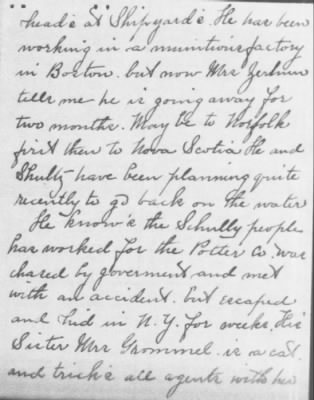 head's at Shipyard's. He has been
working in a munitions factory
in Boston. but now Mrs
tells me he is going away for
two months. May be to Norfolk
first then to Nova Scotia He and
Shultz have been planning quite
recently to go back on the water
He know's the Schully people
has worked for the Potter Co. was
chased by goverment and met
with an accident. but escaped
and hid in N.Y. for weeks. His
Sister Mrs Grommel. is a cat.
and trick's all agents with her